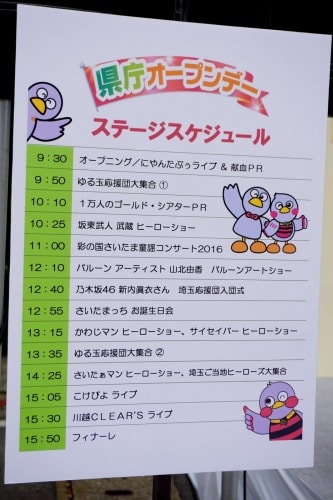 県庁オープンデー
ステージスケジュール
9：30 オープニング／にゃんたぶぅライブ & 献血ＰＲ
9：50 ゆる玉応援団大集合 ①
10：10 １万人のゴールド・シアターＰＲ
10：25 坂東武人 武蔵 ヒーローショー
11：00 彩の国さいたま童謡コンサート2016
12：10 バルーン アーティスト 山北由香　バルーンアートショー
12：40 乃木坂46 新内眞衣さん　埼玉応援団入団式
12：55 さいたまっち お誕生日会
13：15 かわじマン ヒーローショー、サイセイバー ヒーローショー
13：35 ゆる玉応援団大集合 ②
14：25 さいたぁマン ヒーローショー、埼玉ご当地ヒーローズ大集合
15：05 こけぴよ ライブ
15：30 川越ＣＬＥＡＲ'Ｓ ライブ
15：50 フィナーレ